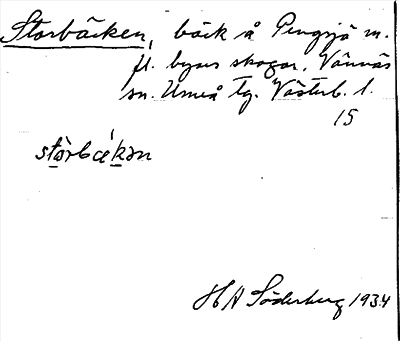 Storbäcken, bäck å Pengsjö m.
fl. byars skogar, Vännäs
sn. Umeå tg. Västerb. l.
15
stòrbæ̀kən
H A Söderberg 1934